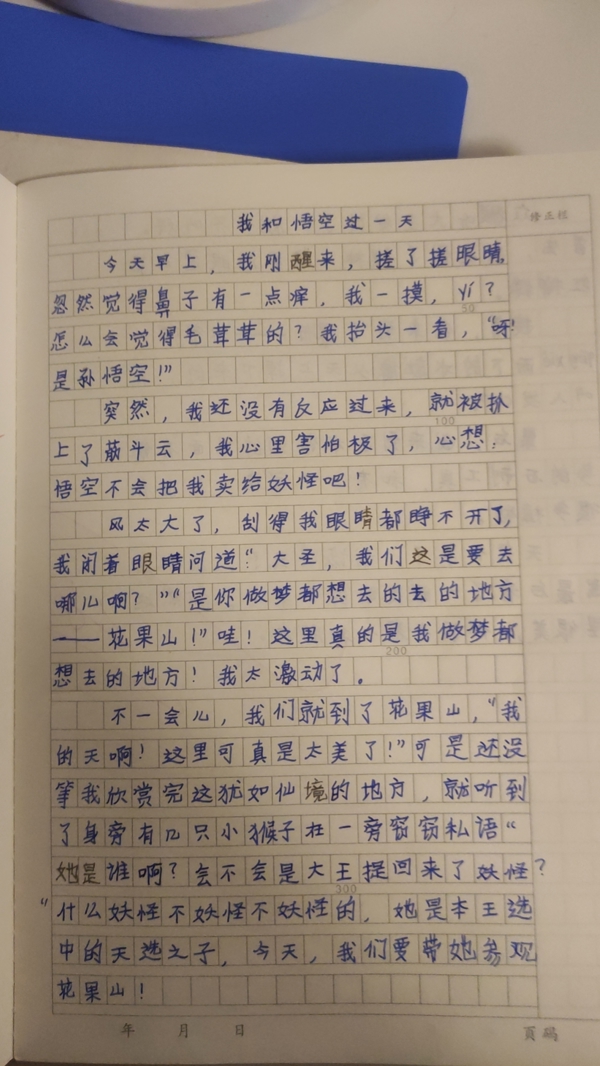 修正栏
我和悟空过一天
今天早上，我刚醒来，搓了搓眼睛，
忽然觉得鼻子有一点痒，我一摸，yí？
50
怎么会觉得毛茸茸的？我抬头一看，“呀！
是孙悟空！”
突然，我还没有反应过来，就被扒
100
上了筋斗云，我心里害怕极了，心想：
悟空不会把我卖给妖怪吧！
风太大了，刮得我眼睛都睁不开了，
我闭着眼睛问道：“大圣，我们这是要去
哪儿啊？”“是你做梦都想去的去的地方
——花果山！”哇！这里真的是我做梦都
200
想去的地方！我太激动了。
不一会儿，我们就到了花果山，“我
的天啊！这里可真是太美了！”可是还没
等我欣赏完这犹如仙境的地方，就听到
了身旁有几只小猴子在一旁窃窃私语“
她是谁啊？会不会是大王捉回来了妖怪？
300
“什么妖怪不妖怪不妖怪的，她是本王选
中的天选之子，今天，我们要带她参观
花果山！
年 月 日
頁碼